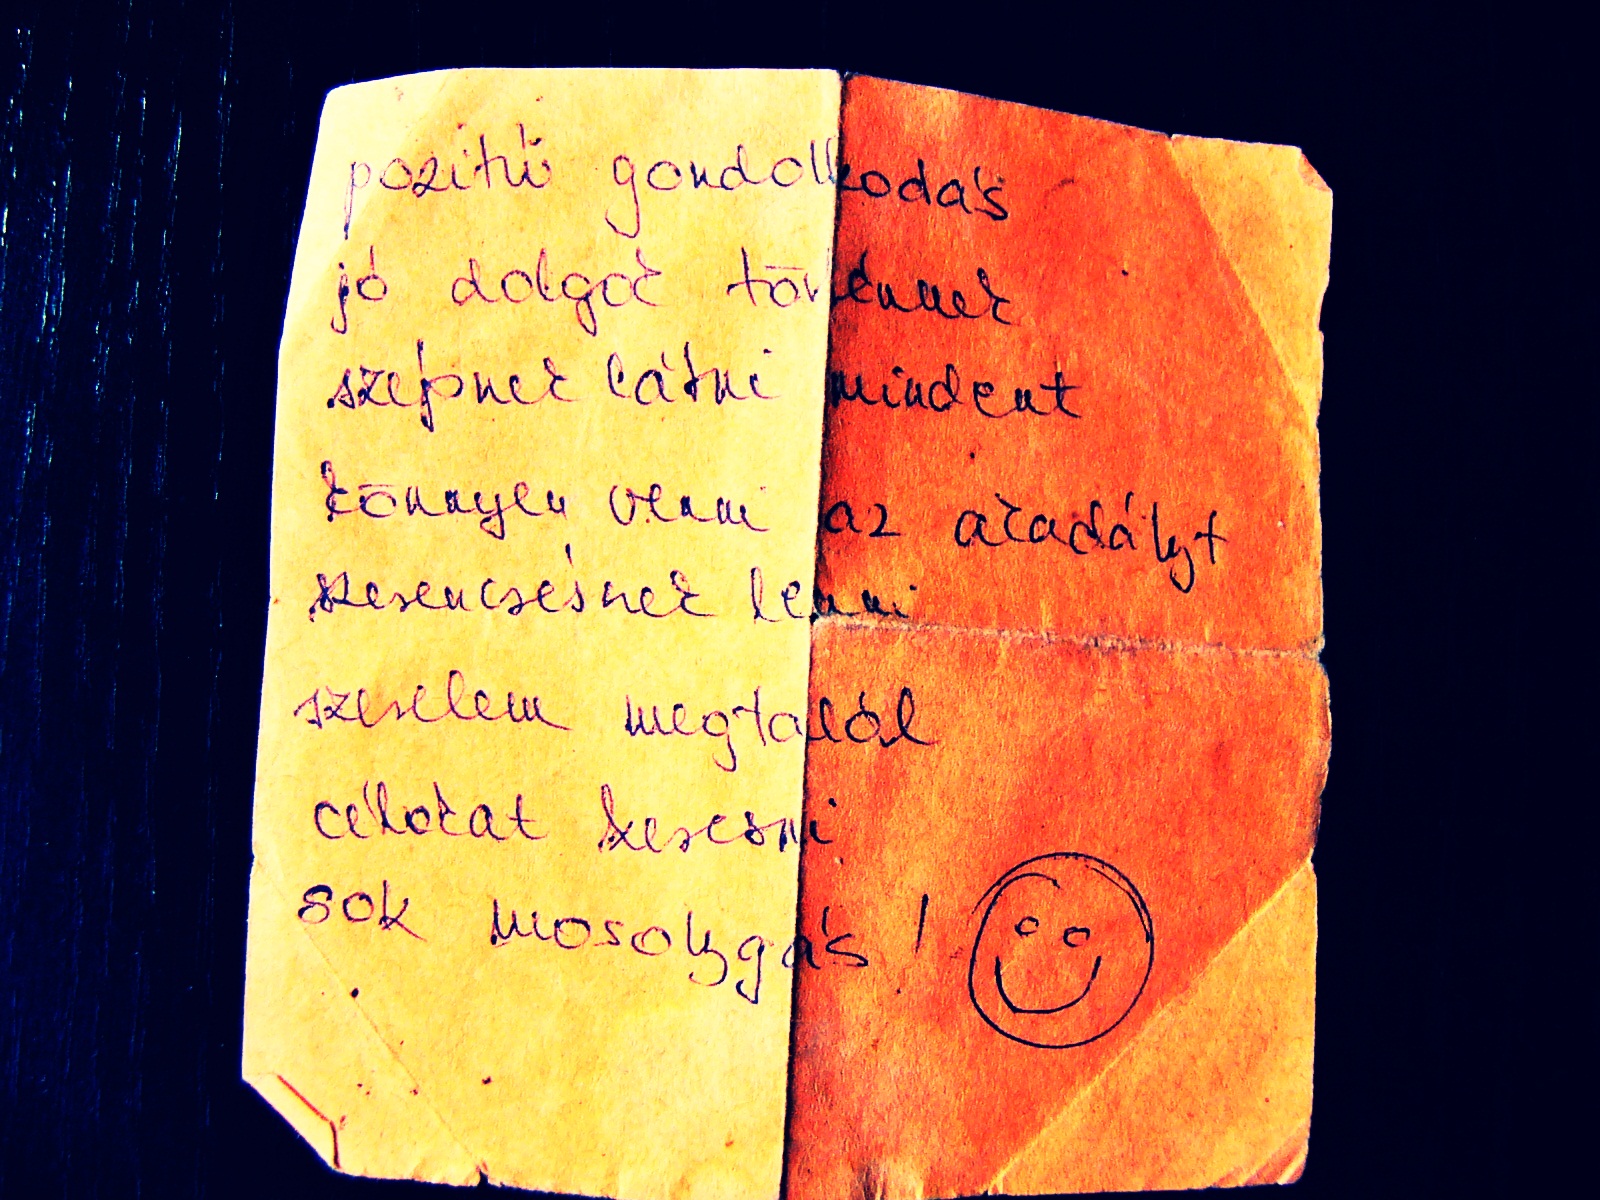 pozitív gondolkodás
jó dolgok történnek
szépnek látni mindent
könnyen venni az akadályt
szerencsésnek lenni
szerelem megtalál
célokat keresni
sok mosolygás !